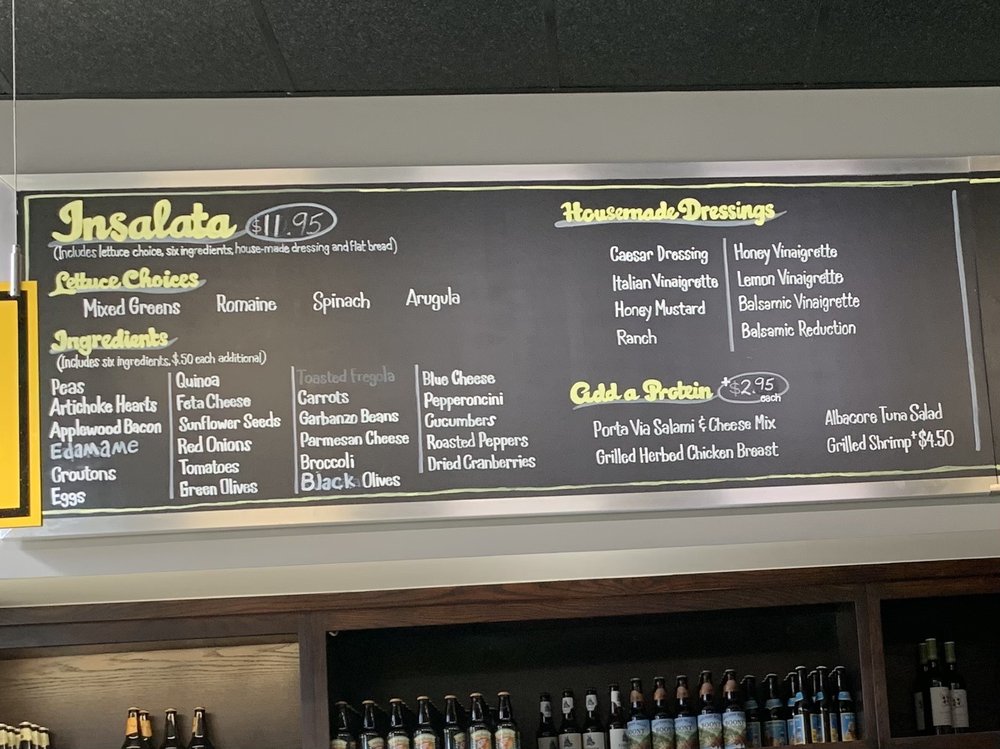 Insalata $11.95
(Includes lettuce choice, six ingredients, house-made dressing and flat bread)
Lettuce Choices
Mixed Greens Romaine Spinach Arugula
Ingredients
(Includes six ingredients, $.50 each additional)
Peas
Artichoke Hearts
Applewood Bacon
Edamame
Croutons
Eggs
Quinoa
Feta Cheese
Sunflower Seeds
Red Onions
Tomatoes
Green Olives
Toasted Fregola
Carrots
Garbanzo Beans
Parmesan Cheese
Broccoli
Black Olives
Blue Cheese
Pepperoncini
Cucumbers
Roasted Peppers
Dried Cranberries
Housemade Dressings
Caesar Dressing
Italian Vinaigrette
Honey Mustard
Ranch
Honey Vinaigrette
Lemon Vinaigrette
Balsamic Vinaigrette
Balsamic Reduction
Add a Protein +$2.95
each
Porta Via Salami & Cheese Mix
Grilled Herbed Chicken Breast
Albacore Tuna Salad
Grilled Shrimp +$4.50